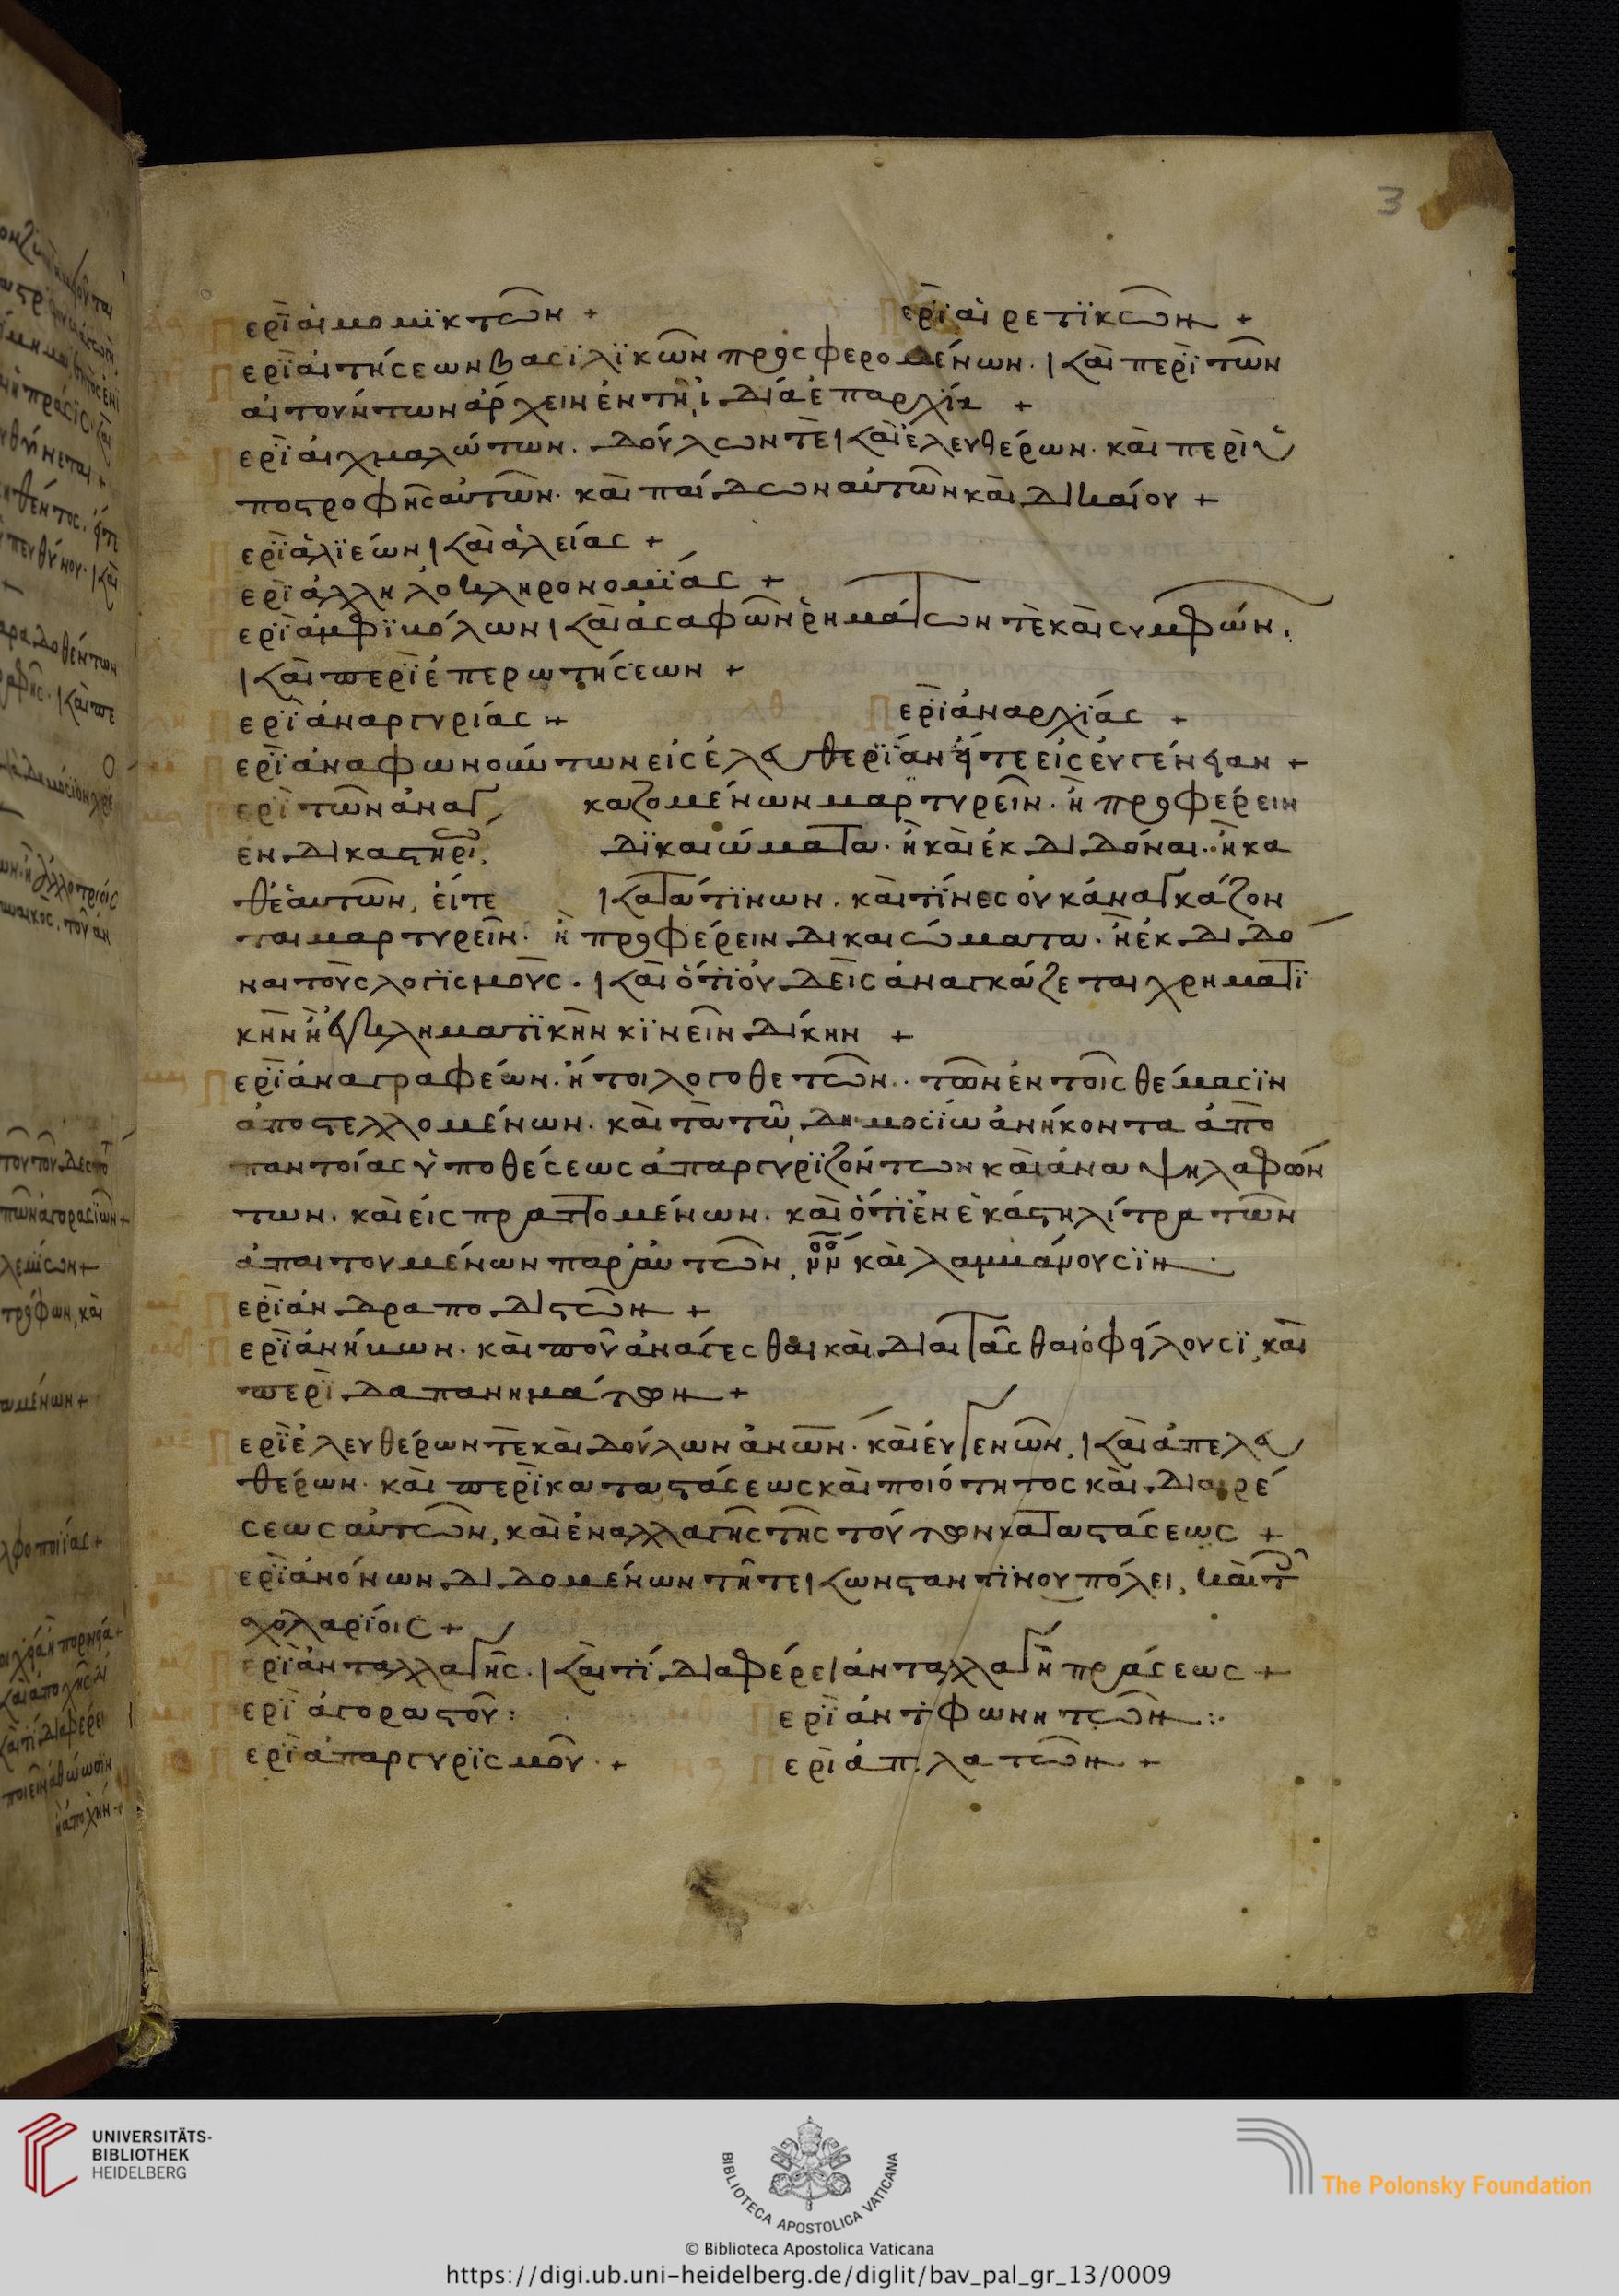 3
Περὶ αἱμομικτῶν + Περὶ αἱρετικῶν +
Περὶ αἰτήσεων βασιλικῶν προσφερομένων. καὶ περὶ τῶν
αἰτούντων ἄρχειν ἐν τῆι ἰδία ἐπαρχία +
Περὶ αἰχμαλώτων. δούλων τὲ καὶ ἐλευθέρων. καὶ περὶ ὑ
ποστροφῆς αὐτῶν. καὶ παίδων αὐτῶν καὶ δικαίου +
Περὶ ἁλιέων καὶ ἁλείας +
Περὶ ἀλληλοκληρονομίας +
Περὶ ἀμφιβόλων καὶ ἀσαφῶν ῥημάτων τὲ καὶ συμφών.
καὶ περὶ ἐπερωτήσεων +
Περὶ ἀναργυρίας + Περὶ ἀναρχίας +
Περὶ ἀναφωνούντων εἰς ἐλευθερίαν εἴτε εἰς εὐγένειαν +
Περὶ τῶν ἀναγ καζομένων μαρτυρεῖν. ἢ προφέρειν
ἐν δικαστηρί δικαιώματα. ἢ καὶ ἐκδιδόναι. ἢ κα
θ' ἑαυτῶν, εἴτε κατά τινων. καὶ τίνες οὐκ ἀναγκάζον
ται μαρτυρεῖν. ἢ προφέρειν δικαιώματα. ἢ ἐκδιδό
ναι τοὺς λογισμούς. καὶ ὅτι οὐδεὶς ἀναγκάζεται χρηματι
κὴν ἢ ἐγκληματικὴν κινεῖν δίκην +
Περὶ ἀναγραφέων. ἤτοι λογοθετῶν. τῶν ἐν τοῖς θέμασιν
ἀποστελλομένων. καὶ τὰ τῶ δημοσίω ἀνήκοντα ἀπὸ
παντοίας ὑποθέσεως ἀπαργυριζόντων καὶ ἀναψηλαφών
των. καὶ εἰσπραττομένων. καὶ ὅτι ἐν ἑκάστη λίτρα τῶν
ἀπαιτουμένων παρ' αὐτῶν, νν καὶ λαμβάνουσιν
Περὶ ἀνδραποδιστῶν +
Περὶ ἀνήκων. καὶ ποῦ ἀνάγεσθαι καὶ διαιτᾶσθαι ὀφείλουσι, καὶ
περὶ δαπανημάτων +
Περὶ ἐλευθέρων τὲ καὶ δούλων ἀνων. καὶ εὐγενῶν, καὶ ἀπελευ
θέρων. καὶ περὶ καταστάσεως καὶ ποιότητος καὶ διαιρέ
σεως αὐτῶν, καὶ ἐναλλαγῆς τῆς τούτων καταστάσεως +
Περὶ ἀνόνων διδομένων τῆ τε κωνσταντινουπόλει, καὶ τ
σχολαρίοις +
Περὶ ἀνταλλαγῆς. καὶ τί διαφέρει ἀνταλλαγὴ πράσεως +
Περὶ ἀγοραστοῦ : Περὶ ἀντιφωνητῶν :.
Περὶ ἀπαργυρισμοῦ + Περὶ ἀπελατῶν +
UNIVERSITÄTS-
BIBLIOTHEK
HEIDELBERG
BIBLIOTECA APOSTOLICA VATICANA
The Polonsky Foundation
© Biblioteca Apostolica Vaticana
https://digi.ub.uni-heidelberg.de/diglit/bav_pal_gr_13/0009